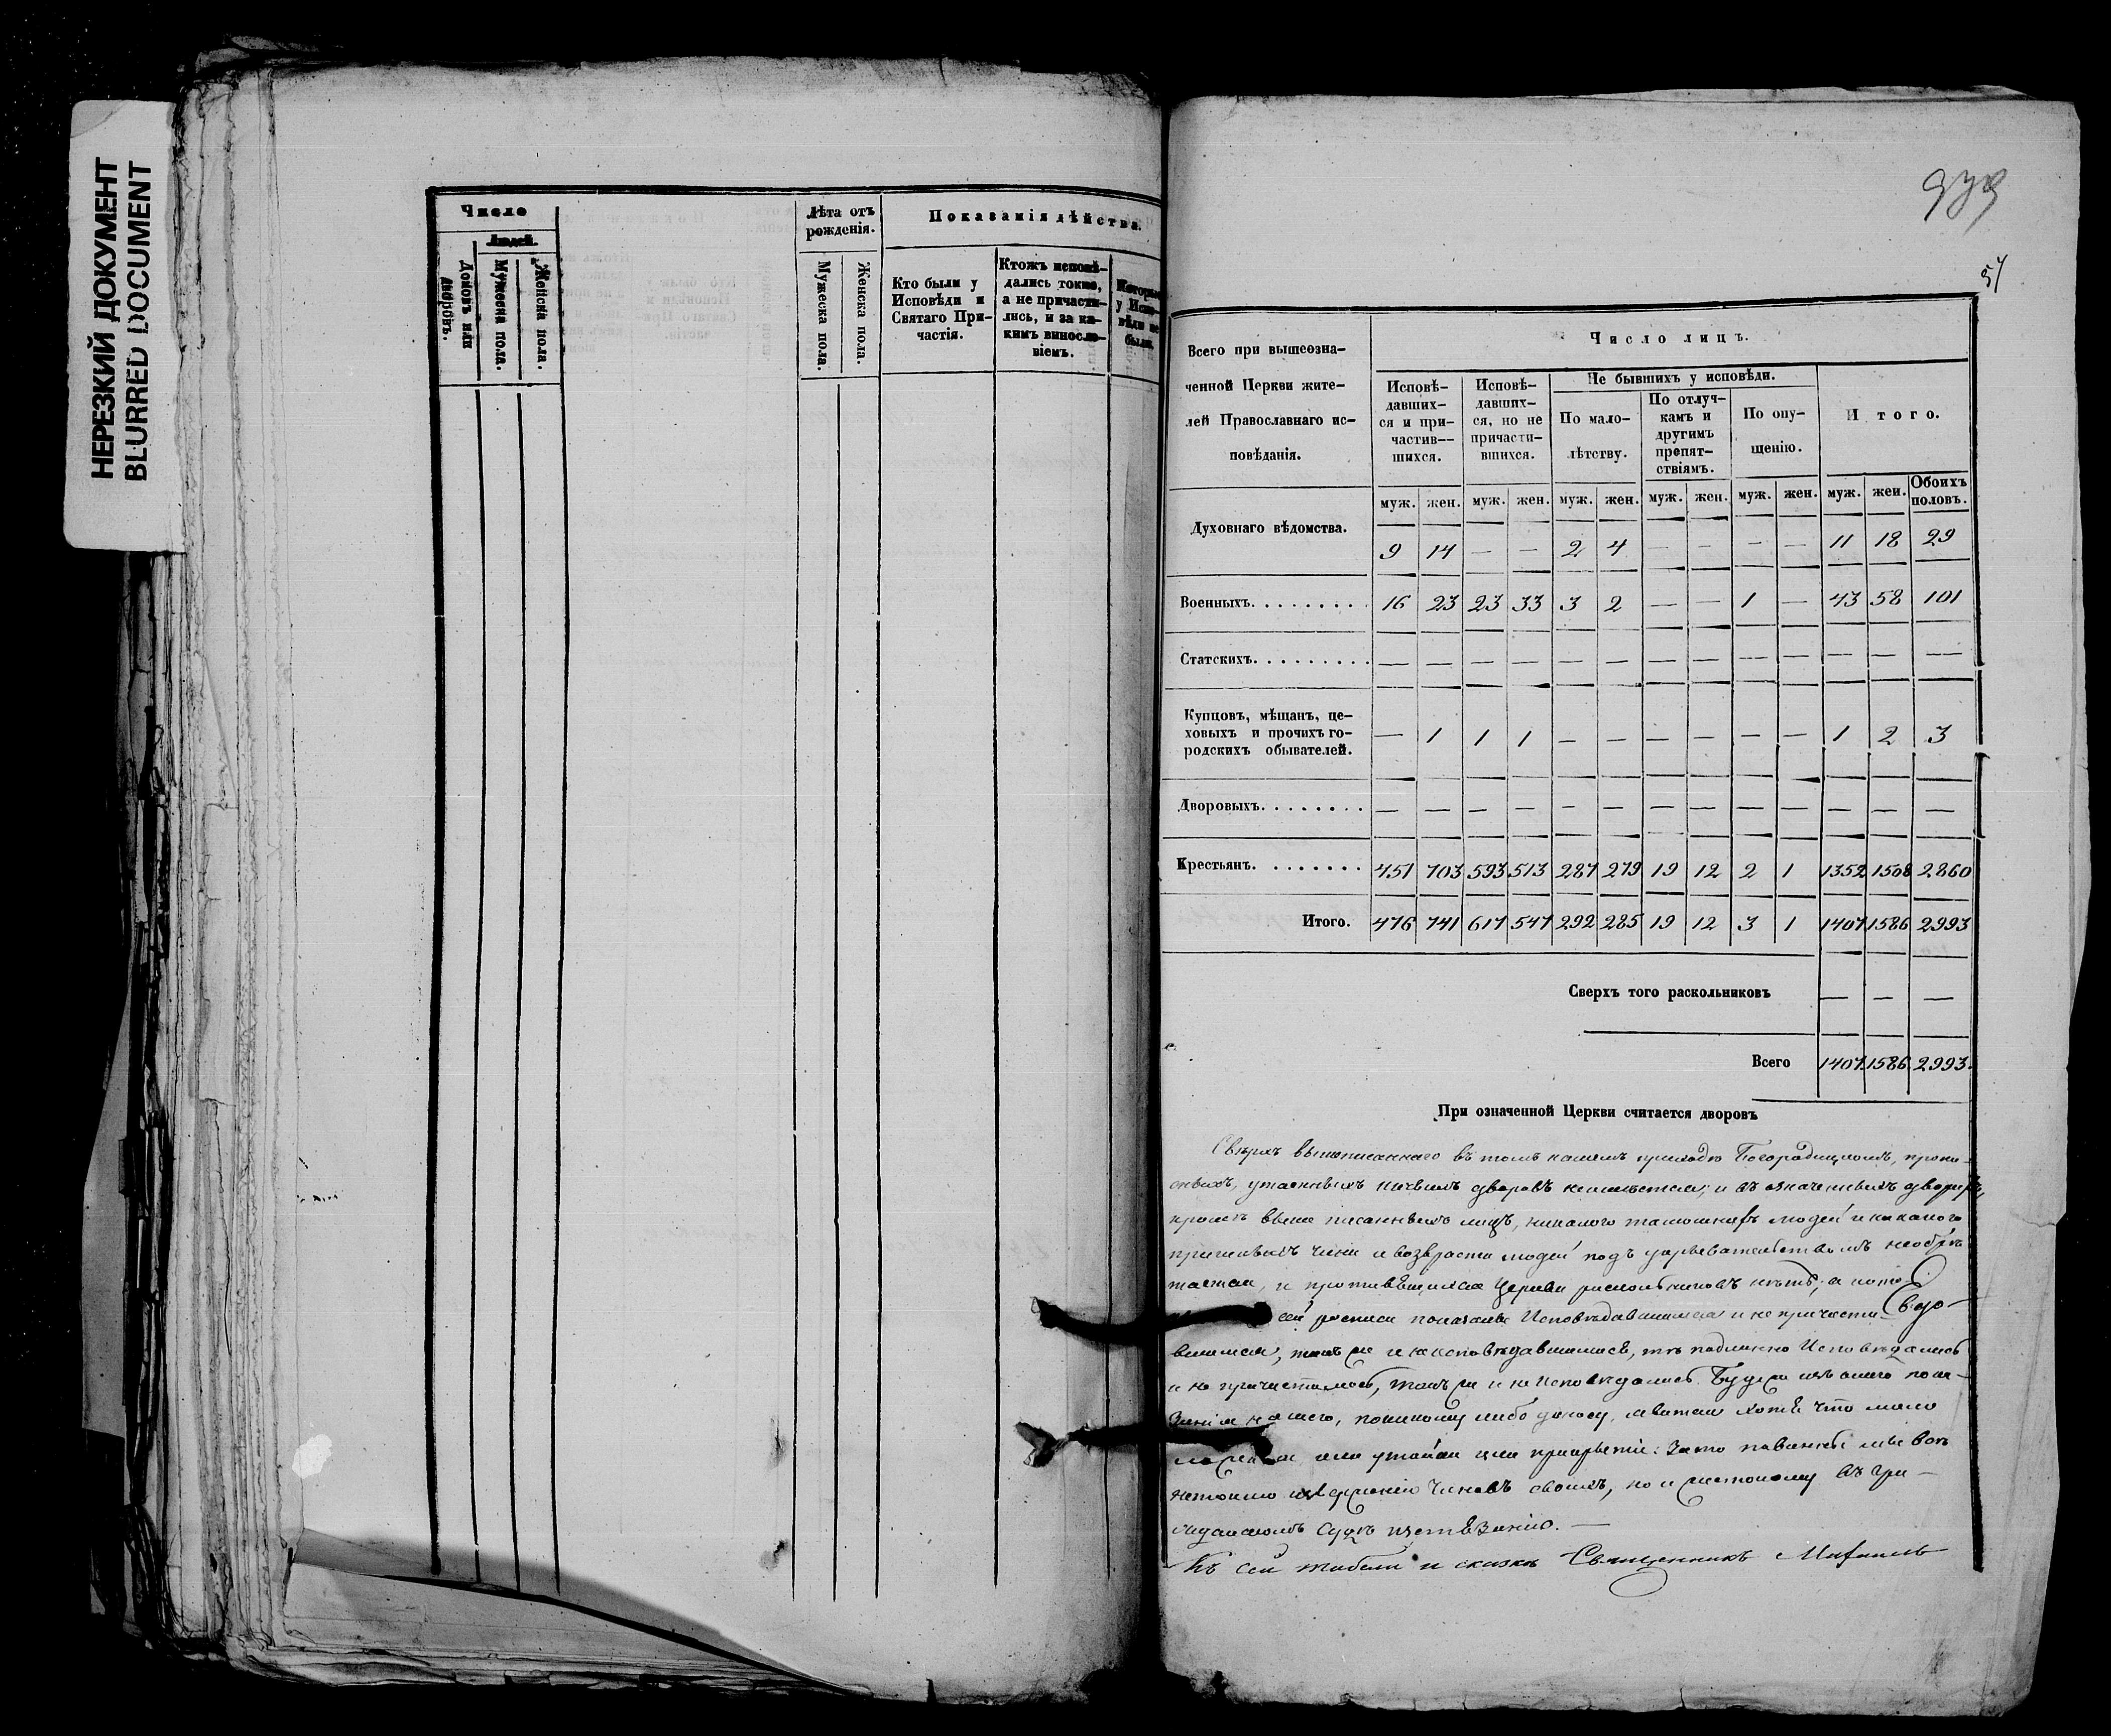 НЕРЕЗКИЙ ДОКУМЕНТ
BLURRED DOCUMENT
Число
Людей.
Домовъ или дворовъ.
Мужеска пола.
Женска пола.
Лѣта отъ
рожденія.
Мужеска пола.
Женска пола.
Показанія дѣйства.
Кто были у
Исповѣди и
Святаго При-
частія.
Ктожъ исповѣ-
дались токмо,
а не причасти-
лись, и за ка-
кимъ винословіемъ.
Которые
у Испо-
вѣди не
были.
979
57
Всего при вышеозна-
ченной Церкви жите-
лей Православнаго ис-
повѣданія.
Число лицъ.
Исповѣ-
давших-
ся и при-
частив-
шихся.
Исповѣ-
давших-
ся, но не
причасти-
вшихся.
Не бывшихъ у исповѣди.
По мало-
лѣтству.
По отлуч-
камъ и
другимъ
препят-
ствіямъ.
По опу-
щенію.
Итого.
муж. жен. муж. жен. муж. жен. муж. жен. муж. жен. муж. жен. Обоихъ половъ.
Духовнаго вѣдомства. 9 14 — — 2 4 — — — — 11 18 29
Военныхъ. . . . . . . . . 16 23 23 33 3 2 — — 1 — 43 58 101
Статскихъ. . . . . . . . . — — — — — — — — — — — — —
Купцовъ, мѣщанъ, це-
ховыхъ и прочихъ го-
родскихъ обывателей. — 1 1 1 — — — — — — 1 2 3
Дворовыхъ. . . . . . . . — — — — — — — — — — — — —
Крестьянъ. . . . . . . . 451 703 593 513 287 279 19 12 2 1 1352 1508 2860
Итого. 476 741 617 547 292 285 19 12 3 1 1407 1586 2993
Сверхъ того раскольниковъ — — —
Всего 1407. 1586. 2993.
При означенной Церкви считается дворовъ
Сверхъ вышеписаннаго въ томъ нашемъ приходѣ Богородицкомъ, пропи-
санныхъ, утаенныхъ ничьихъ дворовъ неимѣется; и въ означенныхъ дворахъ,
кромѣ выше писанныхъ лицъ, никакого тамошнихъ людей и никакого
чина и возраста людей подъ укрывательствомъ необрѣ-
тается, и противящихся Церкви раскольниковъ нѣтъ; а кото-
сей росписи показаны Исповѣдавшимися и не причасти-
вшимися, такъ же и неисповѣдавшимися, тѣ подлинно Исповѣдались
и не причастились, такъ же и не Исповѣдались. Будеже изъ онаго пока-
занія нашего, покакому либо доносу, явится хотя что мало
или утайки или прикрытіе: За то повинны мы
нетокмо изверженію чиновъ своихъ, но и жестокому въ гра-
жданскомъ Судѣ истязанію. —
Къ сей табели и сказкѣ Священникъ Михаилъ